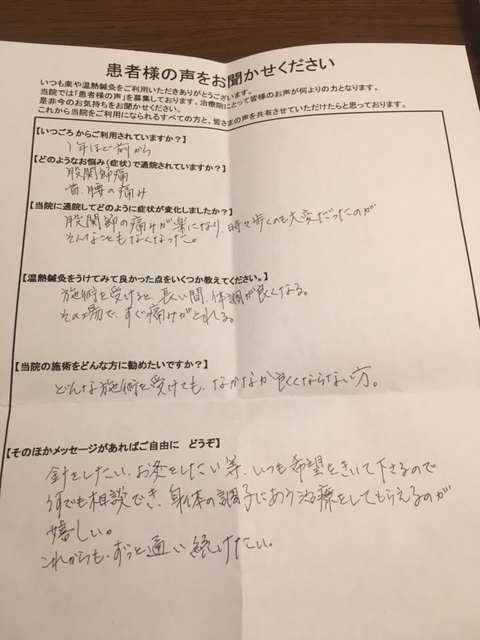 患者様の声をお聞かせください
いつも楽や温熱鍼灸をご利用いただきありがとうございます。
当院では「患者様の声」を募集しております。治療院にとって皆様のお声が何よりの力となります。
是非今のお気持ちをお聞かせください。
これから当院をご利用になられるすべての方と、皆さまの声を共有させていただけたらと思っております。
【いつごろ からご利用されていますか？】
1年ほど前から
【どのようなお悩み（症状）で通院されていますか？】
股関節痛
首、腰の痛み
【当院に通院してどのように症状が変化しましたか？】
股関節の痛みが楽になり、時々歩くのも大変だったのが
そんなこともなくなった。
【温熱鍼灸をうけてみて良かった点をいくつか教えてください。】
施術を受けると、長い間、体調が良くなる。
その場で、すぐ痛みがとれる。
【当院の施術をどんな方に勧めたいですか？】
どんな施術を受けても、なかなか良くならない方。
【そのほかメッセージがあればご自由に　どうぞ】
針をしたい、お灸をしたい等、いつも希望をきいて下さるので
何でも相談でき、身体の調子にあう治療をしてもらえるのが
嬉しい。
これからも、ずっと通い続けたい。